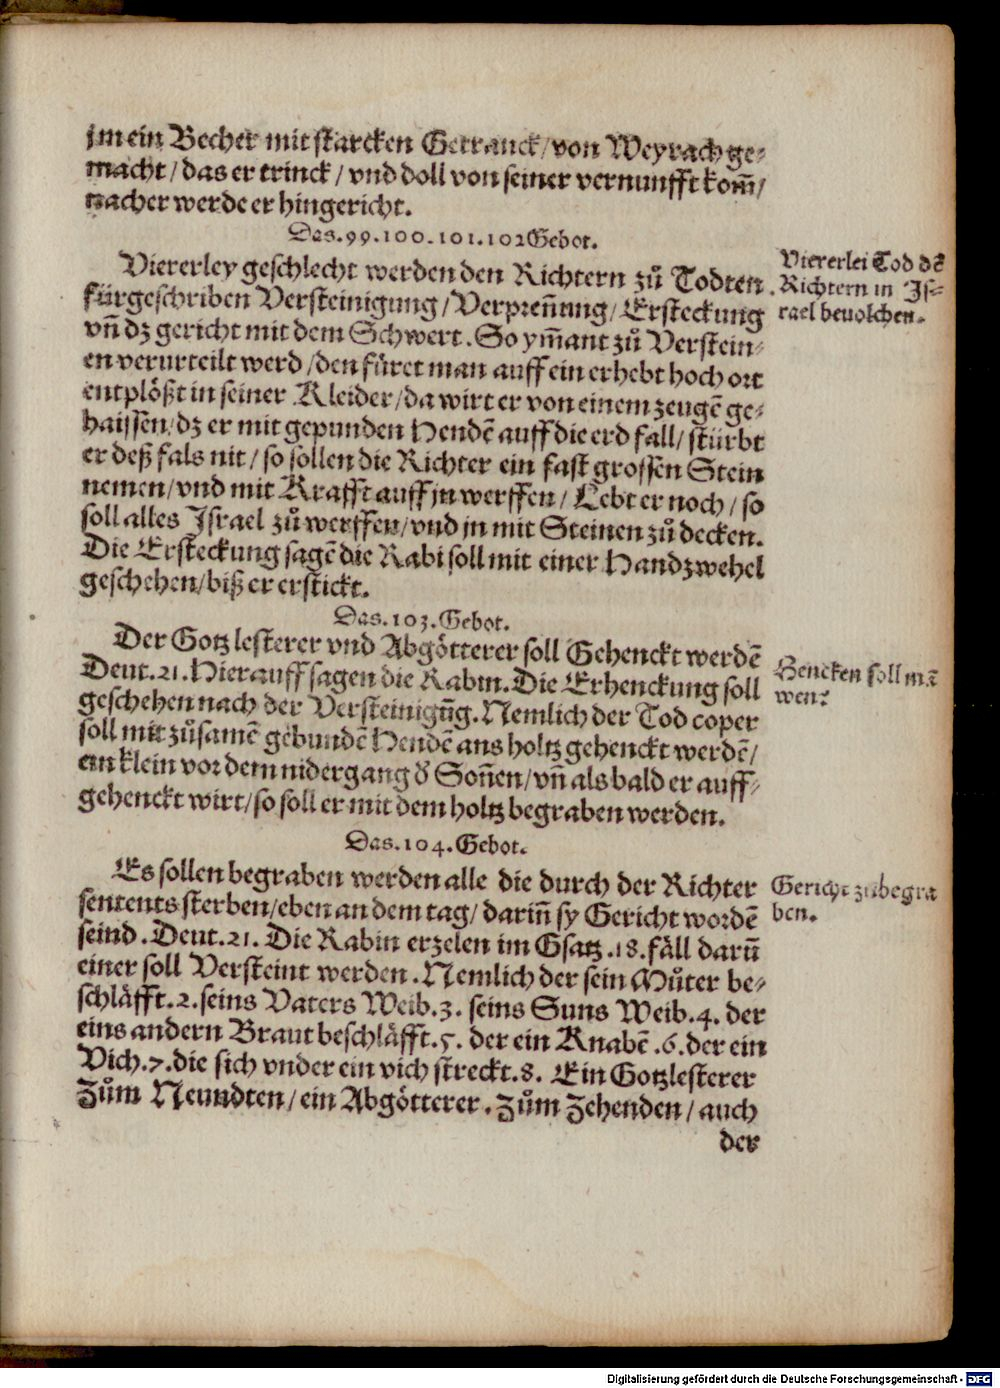 jm ein Becher mit starcken Getranck / von Weyrach ge⸗
macht / das er trinck / vnd doll von seiner vernunfft kom̄ /
nacher werde er hingericht.
Das. 99. 100. 101. 102 Gebot.
Viererley geschlecht werden den Richtern zů Todten
fürgeschriben Versteinigung / Verpreñung / Ersteckung
vñ dz gericht mit dem Schwert. So ym̄ant zů Verstein⸗
en verurteilt werd / den füret man auff ein erhebt hoch ort
entplößt in seiner Kleider / da wirt er von einem zeugē ge⸗
haissen / dz er mit gepunden Hendē auff die erd fall / stürbt
er deß fals nit / so sollen die Richter ein fast grossen Stein
nemen / vnd mit Krafft auff jn werffen / Lebt er noch / so
soll alles Israel zů werffen / vnd jn mit Steinen zů decken.
Die Ersteckung sagē die Rabi soll mit einer Handzwehel
geschehen / biß er erstickt.
Viererlei Tod dē
Richtern in Js⸗
rael beuolchen.
Das. 103. Gebot.
Der Gotzlesterer vnd Abgötterer soll Gehenckt werdē
Deut. 21. Hierauff sagen die Rabin. Die Erhenckung soll
geschehen nach der Versteinigūg. Nemlich der Tod coper
soll mit zůsamē gebundē Hendē ans holtz gehenckt werdē /
ein klein vor dem nidergang d̕ Soñen / vñ als bald er auff⸗
gehenckt wirt / so soll er mit dem holtz begraben werden.
Hencken soll mā
wen?
Das. 104. Gebot.
Es sollen begraben werden alle die durch der Richter
sentents sterben / eben an dem tag / dariñ sy Gericht wordē
seind. Deut. 21. Die Rabin erzelen im Gsatz. 18. fäll darū
einer soll Versteint werden. Nemlich der sein Můter be⸗
schläfft. 2. seins Vaters Weib. 3. seins Suns Weib. 4. der
eins andern Braut beschläfft. 5. der ein Knabē. 6. der ein
Vich. 7. die sich vnder ein vich streckt. 8. Ein Gotzlesterer
Zům Neundten / ein Abgötterer. Zům Zehenden / auch
der
Gericht zubegra
ben.
Digitalisierung gefördert durch die Deutsche Forschungsgemeinschaft - DFG